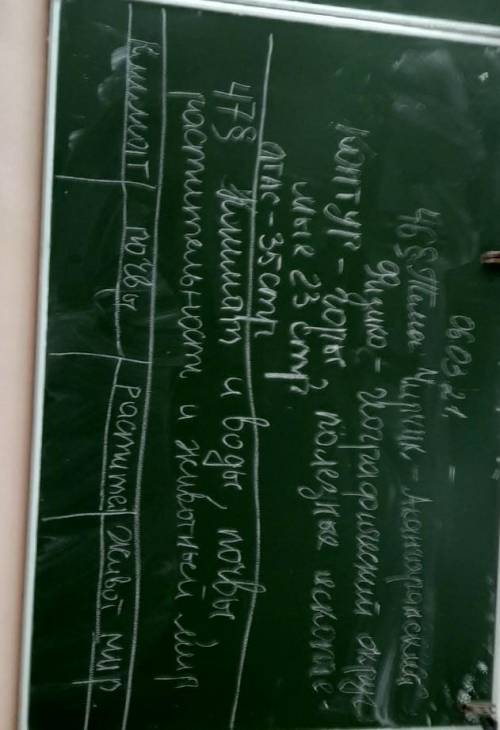 06.03.21
46§ Тема Чирчик-Ахангаранский
Физико-географический округ
Контур - горы, полезные ископае-
мые 23 стр
атлас - 35 стр
47§ Климат и воды, почвы
растительность и животный мир
Климат почвы растител живот мир